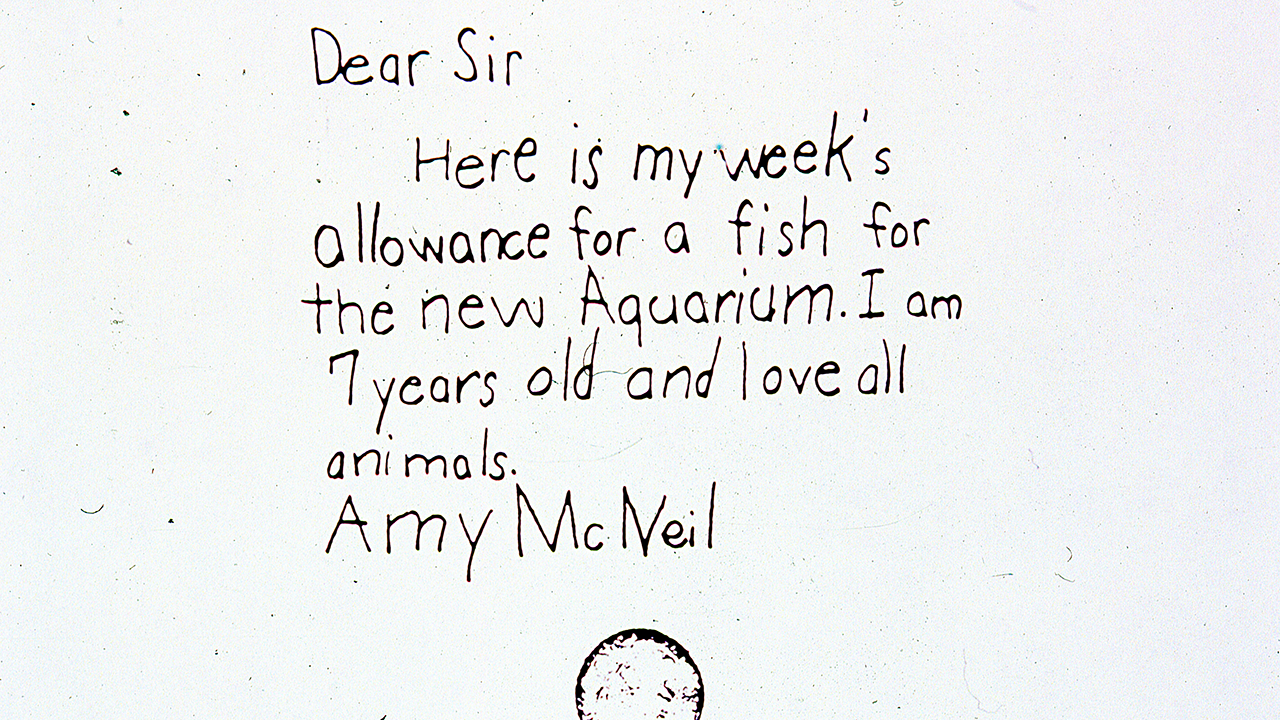 Dear Sir
Here is my week's
allowance for a fish for
the new Aquarium. I am
7 years old and love all
animals.
Amy McNeil